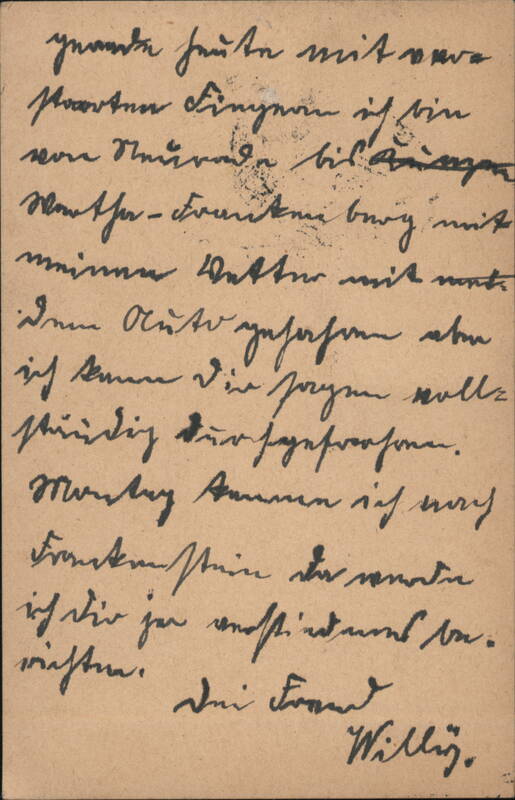 gerade heute mit ver-
starrten Fingern ich bin
von Neurode bis
Wartha-Frankenberg mit
meinem Vetter mit
dem Auto gefahren aber
ich kann Dir sagen voll-
ständig durchgefroren.
Montag komme ich nach
Frankenstein da werde
ich Dir ja verschiedenes be-
richten.
Dei Freund
Willy.